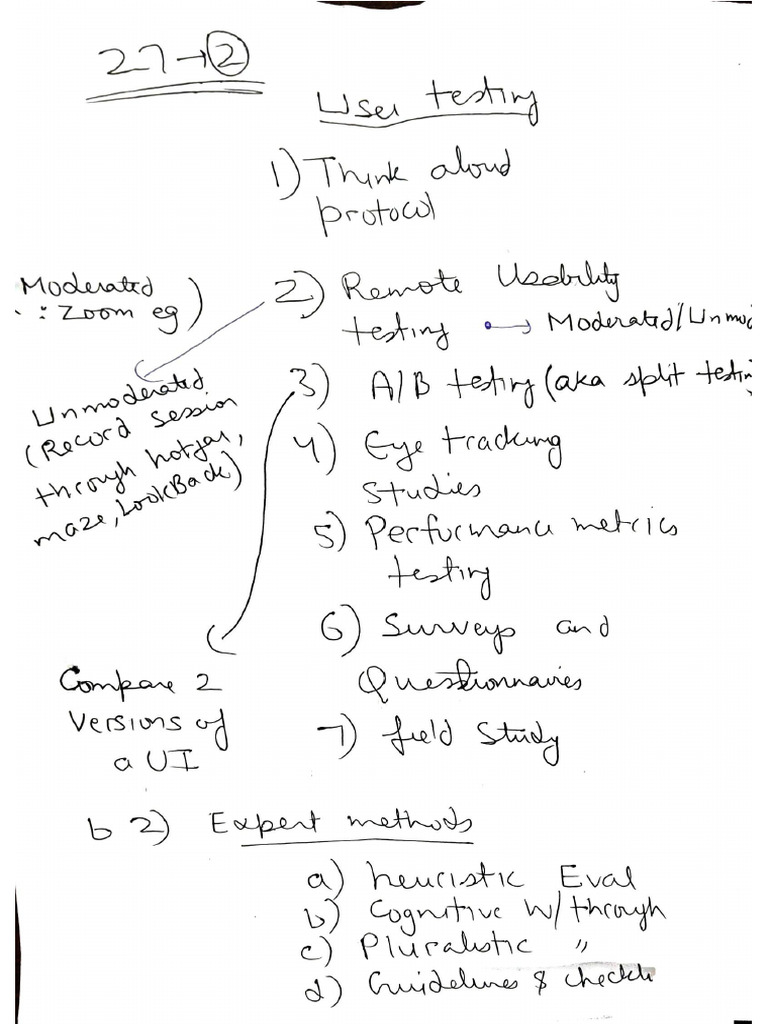 27→2
User testing
1) Think aloud
protocol
Moderated
∴ Zoom eg)
2) Remote Usability
testing → Moderated/Unmod
Unmoderated
(Record session
through hotjar,
maze, LookBack)
3) A/B testing (aka split testin
4) Eye tracking
studies
5) Performance metrics
testing
6) Surveys and
Questionnaires
Compare 2
versions of
a UI
7) field study
b 2) Expert methods
a) heuristic Eval
b) Cognitive w/through
c) Pluralistic "
d) Guidelines & checkli